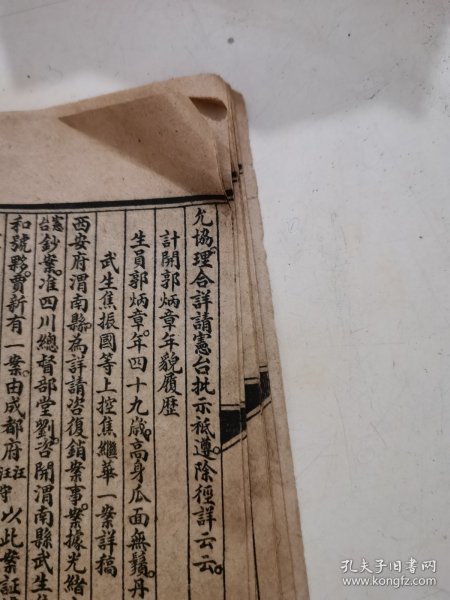 允協。理合詳請憲台批示祗遵。除徑詳云云。
計開郭炳章年貌履歷
生員郭炳章。年四十九歲。高身瓜面無鬚。丹
武生焦振國等上控焦繼華一案詳稿
西安府渭南縣。為詳請咨復銷案事。案據光緒
憲台鈔案。准四川總督部堂劉咨開渭南縣武生
和號夥賈新有一案。由成都府汪守以此案証
孔夫子旧书网
www.kongfz.com